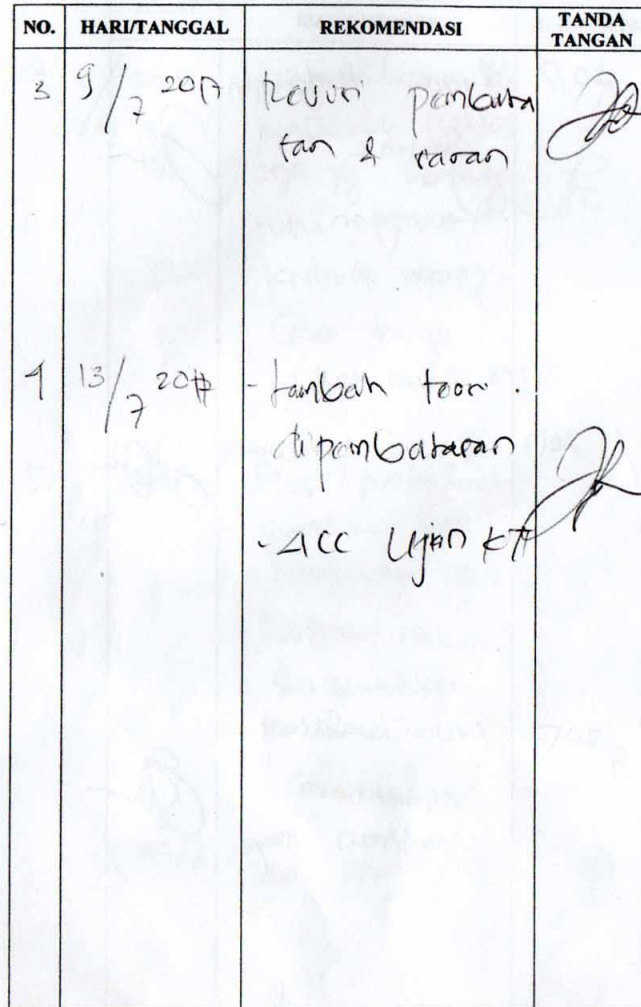 NO. HARI/TANGGAL REKOMENDASI TANDA TANGAN
3 9/7 2017 Revisi pembaha
tan & saran
4 13/7 2017 - tambah teori.
dipembahasan
- ACC Ujian KTI